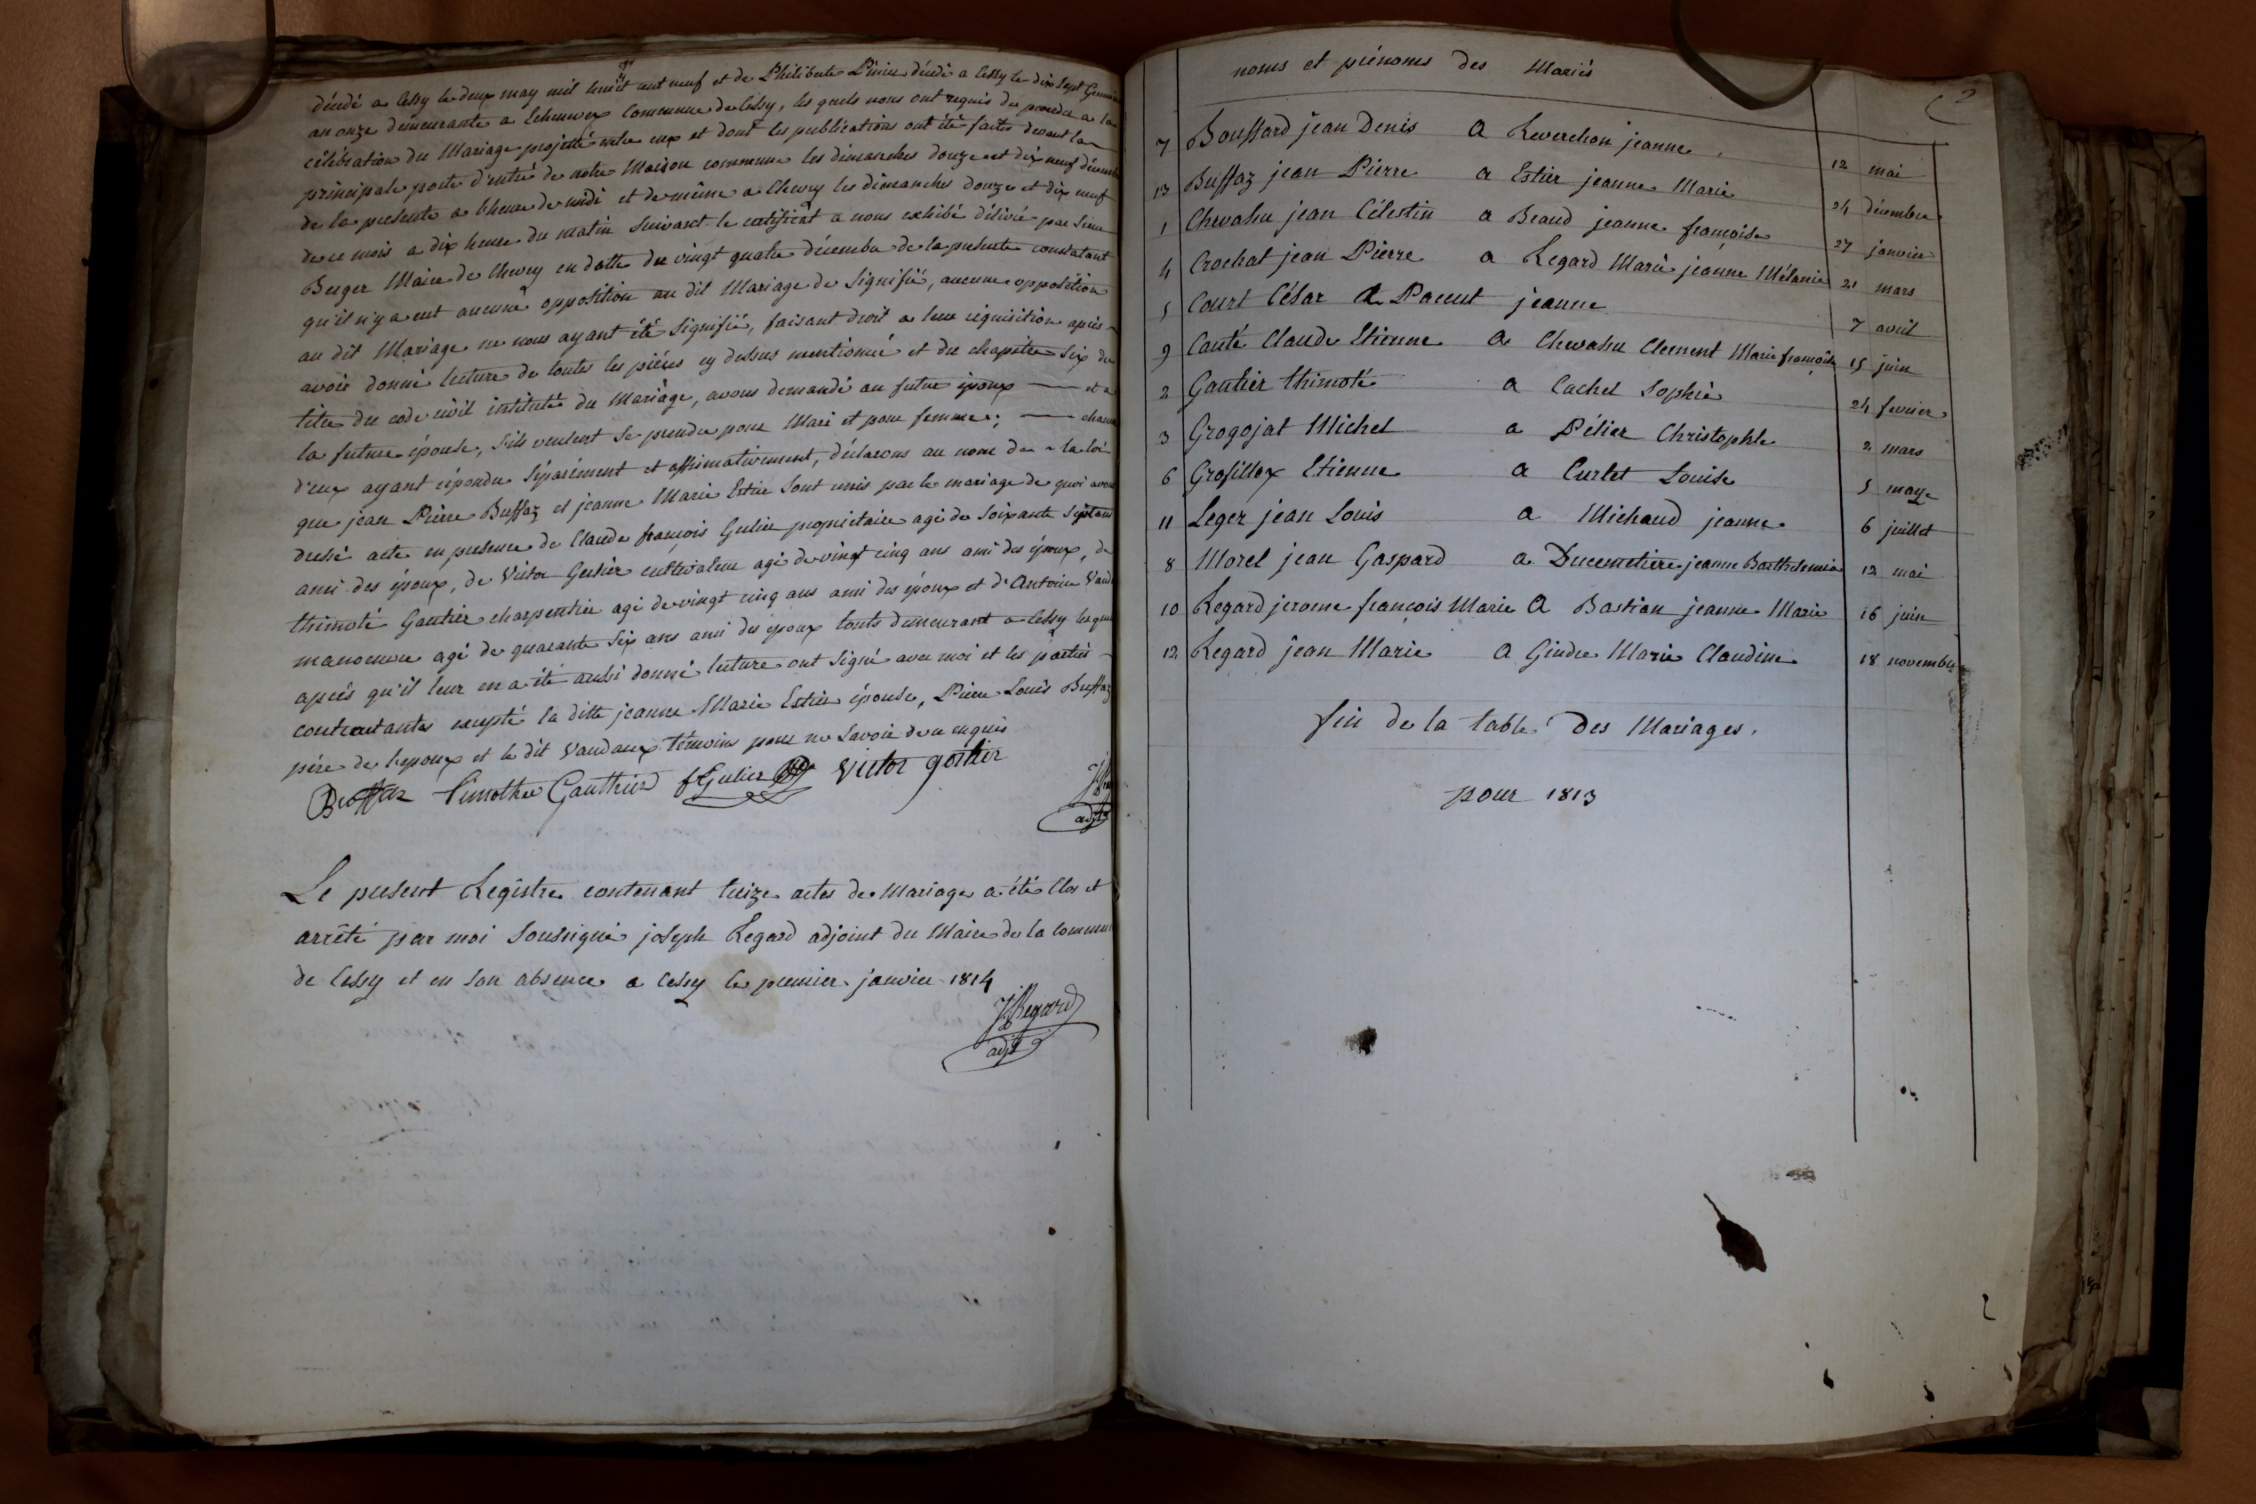 décédé a Cessy le deux may mil huit cent neuf et de Philiberte Perrier décédé a Cessy le dix sept Germinal
an onze demeurante a commune de Cessy, les quels nous ont requis de proceder a la
célébration du Mariage projetté entre eux et dont les publications ont été faites devant la
principale porte d'entré de notre Maison commune les dimanches douze et dix neuf décembre
de la presente a l'heure de midi et de même a Chevry les dimanches douze et dix neuf
de ce mois a dix heure du matin suivant le certificat a nous exhibé délivré par Sieur
Berger Maire de Chevry en datte du vingt quatre décembre de la presente constatant
qu'il n'y a eut aucune opposition au dit Mariage de signifié, aucune opposition
au dit Mariage ne nous ayant été signifié, faisant droit a leur requisition après
avoir donné lecture de toutes les pièces cy dessus mentionné et du chapitre six du
titre du code civil intitulé du Mariage, avons demandé au futur époux et a
la future épouse, s'ils veulent se prendre pour Mari et pour femme; chacun
d'eux ayant répondu séparément et affirmativement, déclarons au nom de la loi
que jean Pierre Buffaz et jeanne Marie Estier sont unis par le mariage de quoi avons
dressé acte en presence de Claude françois Gulier propriétaire agé de soixante sept ans
ami des époux, de Victor Gulier cultivateur agé de vingt cinq ans ami des époux, de
thimoté Gautier charpentier agé de vingt cinq ans ami des époux et d'Antoine Vaud
manoeuvre agé de quarante six ans ami des époux touts demeurant a Cessy lesquels
après qu'il leur en a été aussi donné lecture ont signé avec moi et les parties
contractantes excepté la ditte jeanne Marie Estier épouse, Pierre Louis Buffaz
père de l'epoux et le dit Vandaux témoins pour ne savoir de ce enquis
Buffaz timothée Gauthier fGulier Victor
adjt
Le present Registre contenant treize actes de Mariage a été Clos et
arrêté par moi soussigné joseph Regard adjoint du Maire de la commune
de Cessy et en son absence a Cessy le premier janvier 1814
J Regard
adjt
noms et prénoms des Mariés
7 Bouffard jean Denis a Reverchon jeanne 12 mai
13 Buffaz jean Pierre a Estier jeanne Marie 24 décembre
1 Chevalu jean Célestin a Beaud jeanne françoise 27 janvier
4 Crochat jean Pierre a Regard Marie jeanne Mélanie 21 mars
5 Court César a Paceut jeanne 7 avril
9 Cauté Claude Etienne a Chevalu Clement Marie françoise 15 juin
2 Gautier thimoté a Cachet Sophie 24 fevrier
3 Grogojat Michel a Pélier Christophle 2 mars
6 Grosillex Etienne a Curlet Louise 5 may
11 Leger jean Louis a Michaud jeanne 6 juillet
8 Morel jean Gaspard a Ducemetiere jeanne Barthelemie 12 mai
10 Regard jerome françois Marie a Bastian jeanne Marie 16 juin
12 Regard jean Marie a Gindre Marie Claudine 18 novembre
fin de la table Des Mariages.
pour 1813